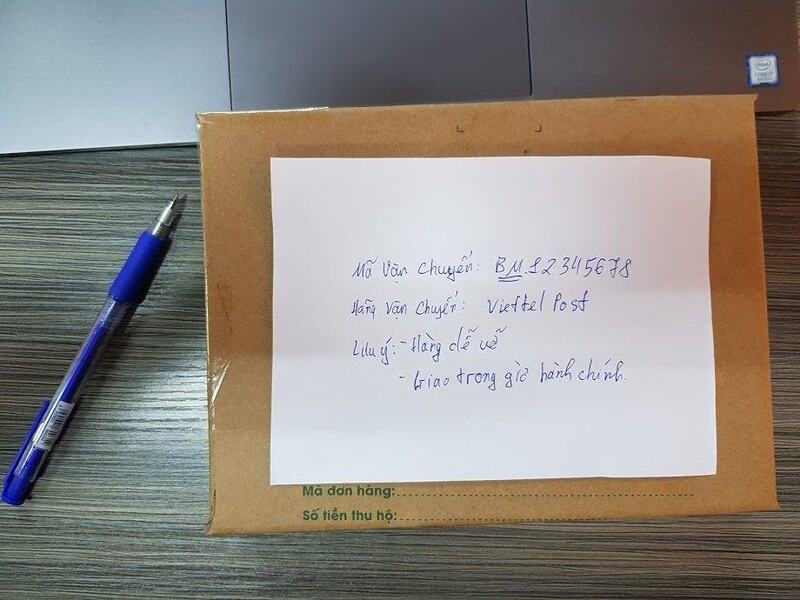 intel
CORE i7
Mã vận chuyển: BM12345678
Hãng vận chuyển: Viettel Post
Lưu ý: - Hàng dễ vỡ
- Giao trong giờ hành chính.
Mã đơn hàng:
Số tiền thu hộ: